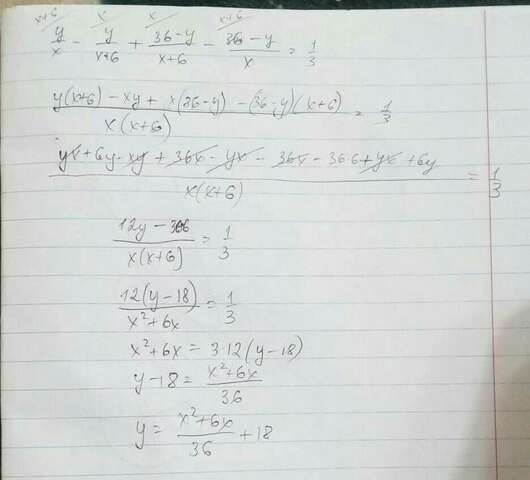 x+6 x x x+6
y/x - y/(x+6) + (36-y)/(x+6) - (36-y)/x = 1/3
(y(x+6) - xy + x(36-y) - (36-y)(x+6))/(x(x+6)) = 1/3
(yx + 6y - xy + 36x - yx - 36x - 36·6 + yx + 6y)/(x(x+6)) = 1/3
(12y - 36·6)/(x(x+6)) = 1/3
(12(y-18))/(x²+6x) = 1/3
x²+6x = 3·12(y-18)
y-18 = (x²+6x)/36
y = (x²+6x)/36 + 18